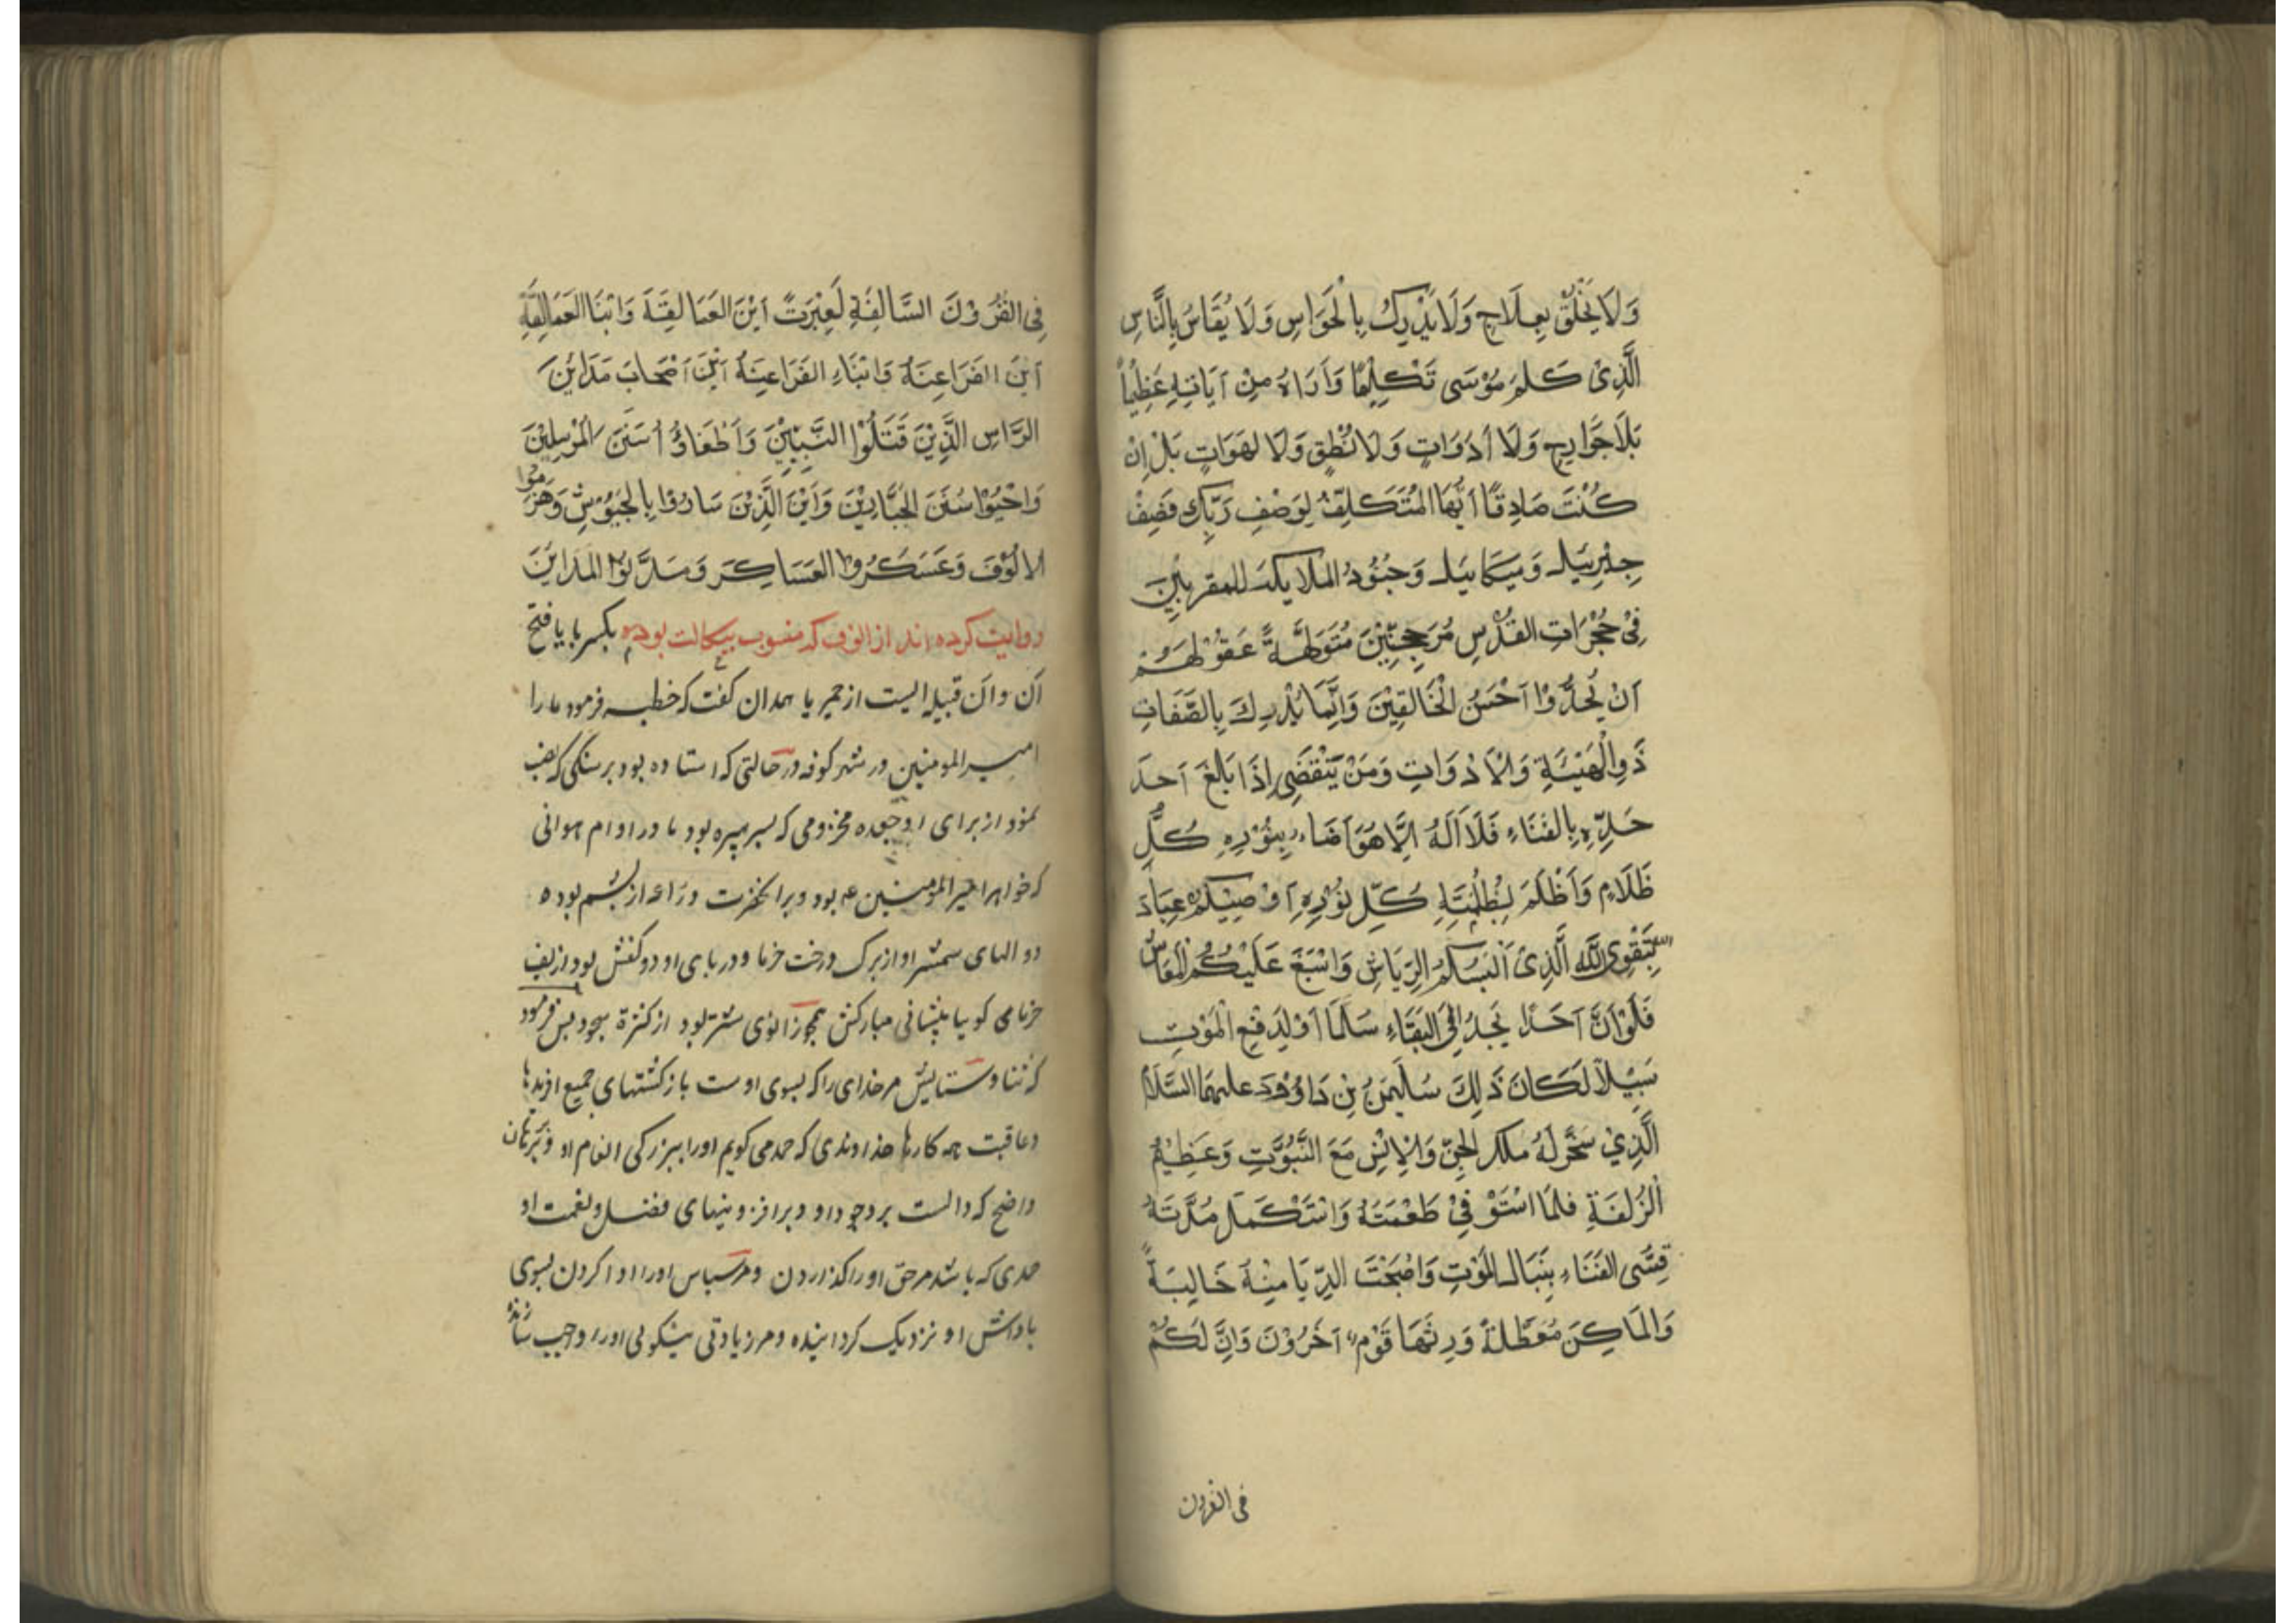 وَلَا يَخْلُقُ بِعِلَاجٍ وَلَا يُدْرِكُ بِالْحَوَاسِ وَلَا يُقَاسُ بِالنَّاسِ
الَّذِیْ كَلَّمَ مُوْسَى تَكْلِيْمًا وَاَرَاهُ مِنْ اٰيَاتِهِ عَظِيْمًا
بَلَا جَوَارِحٍ وَلَا أَدَوَاتٍ وَلَا نُطْقٍ وَلَا لَهَوَاتٍ بَلْ اِنْ
كُنْتَ صَادِقًا اَيُّهَا الْمُتَكَلِّفُ لِوَصْفِ رَبِّكَ فَصِفْ
جِبْرِئيلَ وَمِيكَائيلَ وَجُنُوْدَ الملايكة المقربين
فِیْ حُجُرَاتِ القُدُسِ مُرَجِحِنِّيْنَ مُتَوَلِّهَةً عَقُوْلُهُمْ
اَنْ يُحَدُّوْا اَحْسَنَ الْخَالِقِيْنَ وَاِنَّمَا يُدْرِكَ بِالصِّفَاتِ
ذَوِالْهَيْئَةِ وَالْاَدْوَاتِ وَمَنْ يَنْقَضِى اِذَا بَالِغَ اَحَدَ
حَدِّهِ بِالفَنَاءِ فَلَا اَلَهُ اِلَّا هُوَ اَضَاءَ بِنُوْرِهِ كُلَّ
ظَلَامٍ وَاَظْلَمَ بِظُلْمَتِهِ كُلِّ نُوْرِهِ اَوْصِيْكُمْ عِبَادَ
بِتَقْوَى اللّٰهِ الَّذِیْ اَلْبَسَكُمُ الرِّيَاشِ وَاَسْبَغَ عَلَيْكُمُ الْمَعَاشَ
فَلَوْ اَنَّ اَحَدًا يَجِدُ اِلَى البَقَاءِ سَلَمًا اَوْ لِدَفْعِ الْمَوْتِ
سَبِيْلاً لَكَانَ ذَلِكَ سُلَيْمٰنُ بْنِ دَاوُوْدَ عليهما السَّلَامُ
الَّذِيْ سَخَّرَ لَهُ ملك الجِنِّ وَالْاِنْسِ مَعَ النُّبُوَّتِ وَعَظِيْمُ
الْزُلْفَةِ فلَمَا اسْتَوْفِیْ طَعْمَتَهُ وَاسْتَكْمَلَ مُدَّتَهُ
قِسَّى الفَنَاءِ بِنَبَالِ المَوْتِ وَاصْبَحَتَ الدِّيَا مِنْهُ خَالِيَةً
وَالمَاكِنَ مُعَطَّلَةً وَرِثَهَا قَوْمٌ اَخَرُوْنَ وَاِنَّ لَكُمْ
فی القرون
فِى القُرُوْنَ السَّالِفَةِ لَعِبْرَتً اَيْنَ العَمَالِقَةَ وَابْنَا العَمَالِقَةِ
اَيْنَ الفَرَاعِنَةُ وَابْنَاءِ الفَرَاعِنَةُ اَيْنَ اَصْحَابَ مَدَايُنَ
الرَّاسِ الَّذِيْنَ قَتَلُوْا النَّبِيِّيْنَ وَاَطْفَاؤُ اُسَنَنَ الْمُرْسِلِيْنَ
وَاحْيُوْا سُنَنَ الجَبَّارِيْنَ وَاَيْنَ الَّذِيْنَ سَارُوْا بِالْجُيُوْشِ وَهَزَمُوْا
الاُلُوْفَ وَعَسَكَرُوا العَسَاكِرَ وَمَدَّنُوا المَدَايِنَ
روایت کرده‌اند از الوف که منسوب ببکالت بوده بکسر با یا فتح
آن و آن قبیله ایست از حمیر یا همدان گفت که خطبه فرمود ما را
امیرالمومنین در شهر کوفه در حالتی که استاده بود بر سنگی که نصب
نمود از برای او جعده مخزومی که پسر هبیره بود
که خواهر امیرالمومنین ع بود و بر آنحضرت دراعه از پشم بوده
دوالهای سمشر او از برک درخت خرما و در پای او دو کفش بود از لیف
خرما می کویا پیشانی مبارکش همچو زانوی شتر بود از کثرة سجود پس فرمود
که ثنا و ستایش مر خدای را که بسوی اوست بازکشتهای جمیع افریدها
و عاقبت همه کارها خداوندی که حمد می کویم او را ببزرکی انعام او و برهان
واضح که دالست بر وجود او و بر افزونیهای فضل و نعمت او
حمدی که باشد مر حق او را کذاردن و مر سپاس او را ادا کردن بسوی
پاداش او نزدیک کرداینده و مر زیادتی نیکوئی او را واجب سازنده